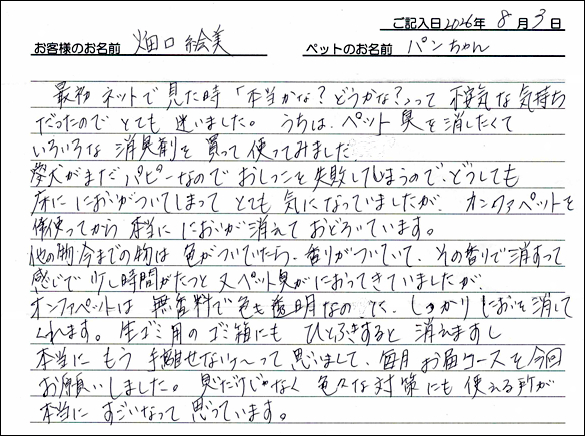 ご記入日 2026年 8月 3日
お客様のお名前 畑口 絵美 ペットのお名前 パンちゃん
最初 ネットで 見た時 「本当かな？どうかな？」って 不安気な気持ち
だったので とても 迷いました。 うちは、ペット臭を消したくて
いろいろな 消臭剤を 買って 使ってみました
愛犬がまだ パピーなので おしっこを失敗してしまうので、どうしても
床に においがついてしまって とても 気になっていましたが、カンファペットを
使ってから 本当に においが消えて おどろいています。
他の物、今までの物は 色がついていたり、香りがついていて、その香りで消すって
感じで 少し時間がたつと 又ペット臭がにおってきていましたが、
カンファペットは 無香料で色も透明なのに、しっかりにおいを消して
くれます。生ゴミ用のゴミ箱にも ひとふきすると 消えますし
本当に もう 手離せないゾ〜って 思いまして、毎月お届コースを今回
お願いしました。 見ただけじゃなく 色々な対策にも 使える所が
本当に すごいなって 思っています。